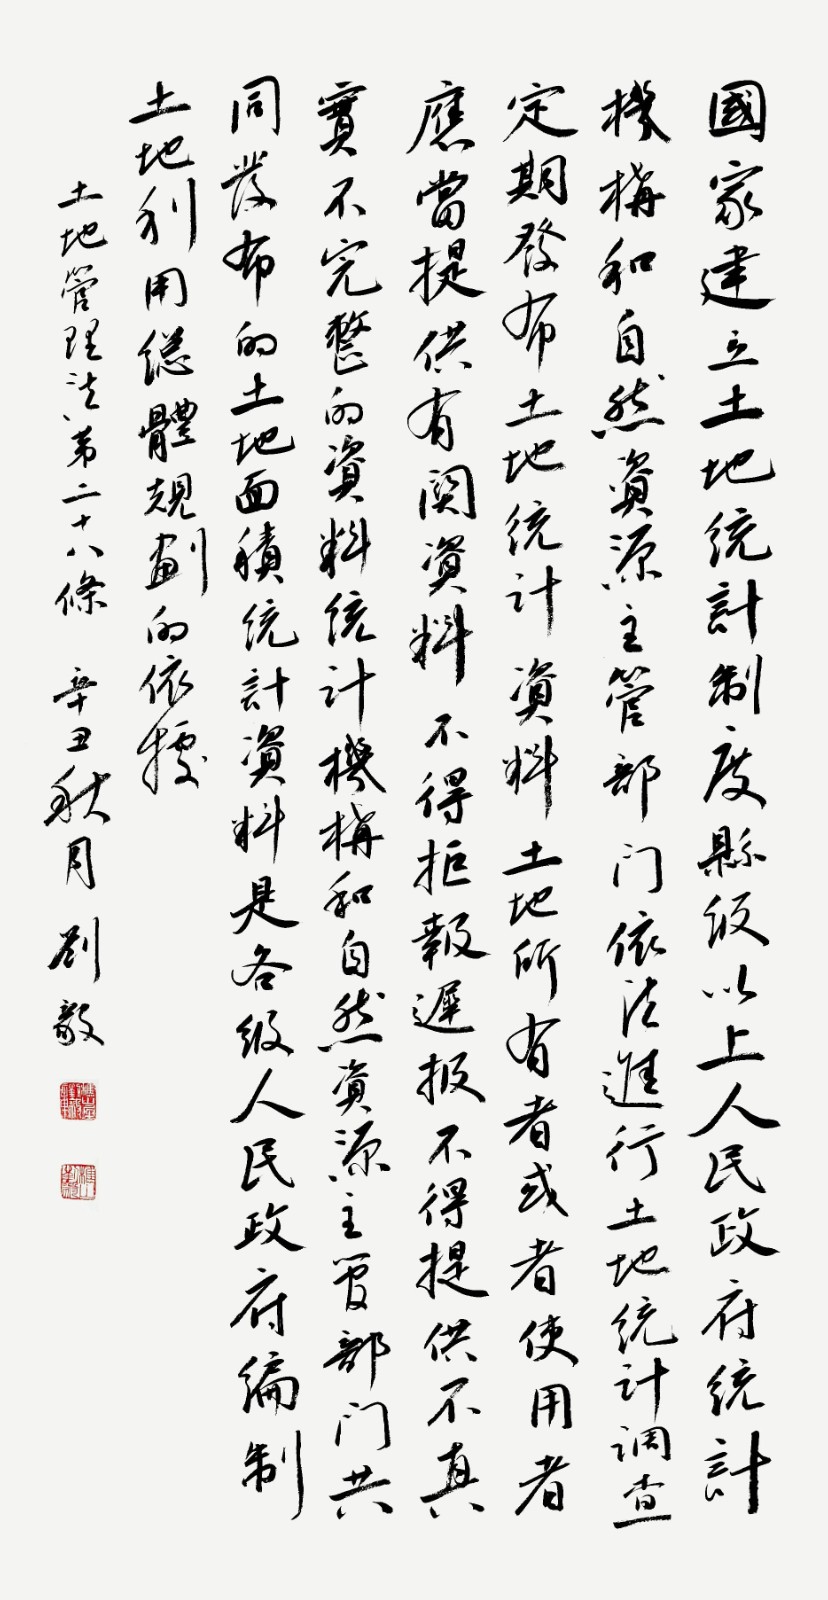 國家建立土地統計制度縣级以上人民政府統計
機構和自然資源主管部门依法進行土地統计調查
定期發布土地統计資料土地所有者或者使用者
應當提供有関資料不得拒報遲报不得提供不真
實不完整的資料統计機構和自然資源主管部门共
同發布的土地面積統計資料是各级人民政府编制
土地利用總體規劃的依據
土地管理法第二十八條 辛丑秋月 劉毅